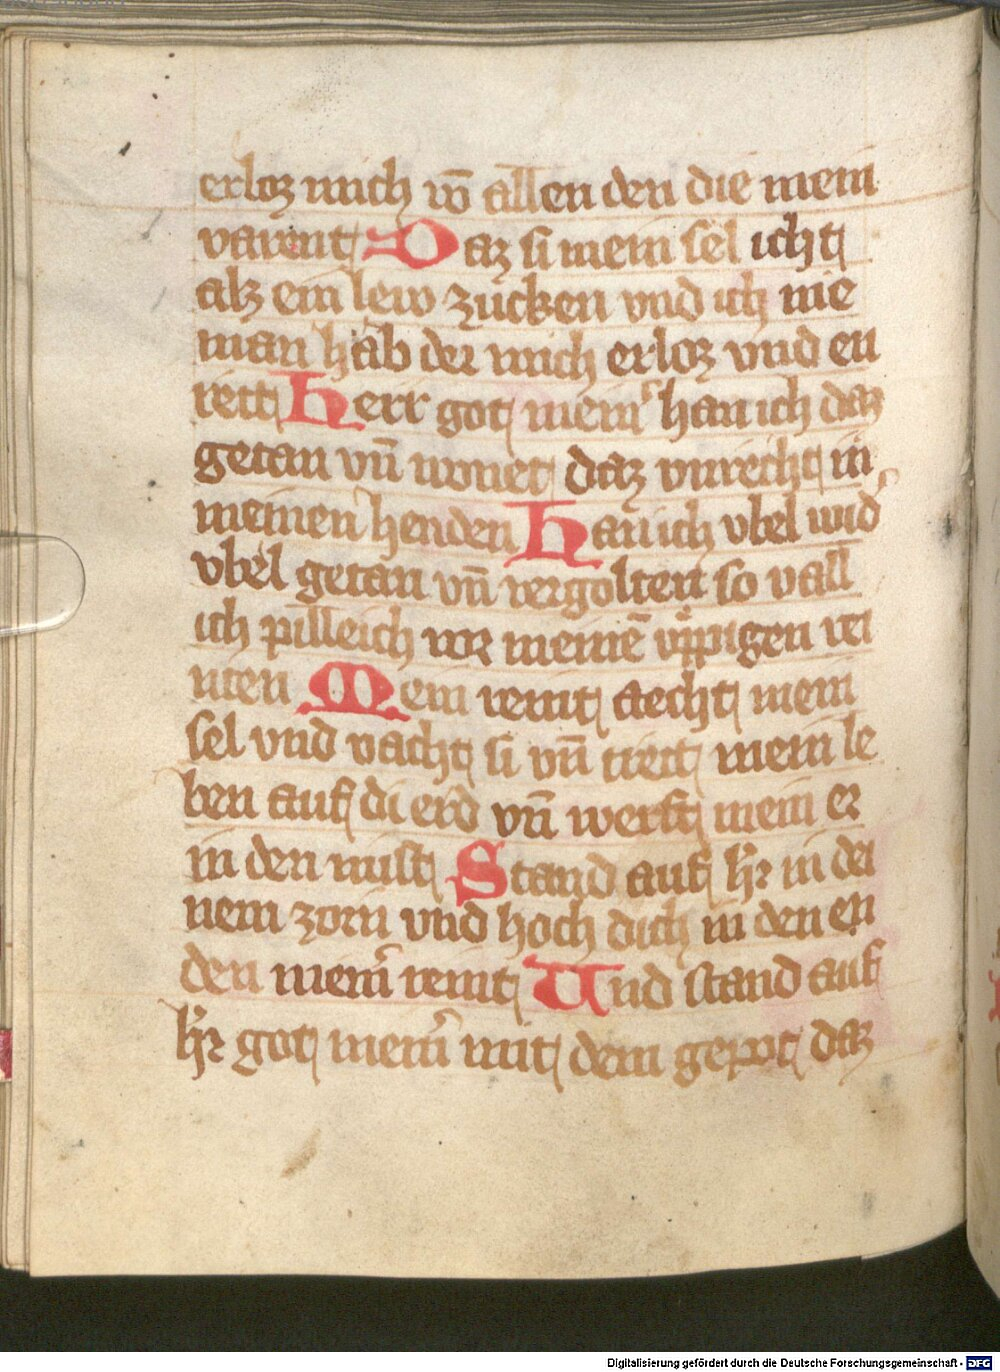 erloz mich vō allen den die mein
varent Daz si mein sel icht
alz ein lew zucken vnd ich nie
man hab der mich erloz vnd en
rett Herr got meinʼ han ich daz
getan vn̄ wonet daz vnrecht in
meinen henden Han ich vbel widʼ
vbel getan vn̄ vergolten so vall
ich pilleich vor meinē vppigen vei
nten Mein veint aecht mein
sel vnd vacht si vn̄ trett mein le
ben auf di erd vn̄ werft mein er
in den mist Stand auf hʼr in dei
nem zorn vnd hoch dich in den en
den meinʼ veint Und stand auf
hʼr got meinʼ mit dem gepot daz
Digitalisierung gefördert durch die Deutsche Forschungsgemeinschaft - DFG